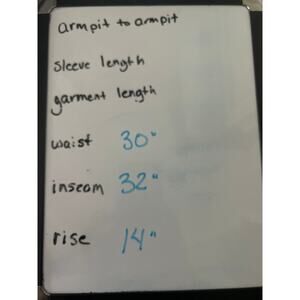 armpit to armpit
sleeve length
garment length
waist 30"
inseam 32"
rise 14"